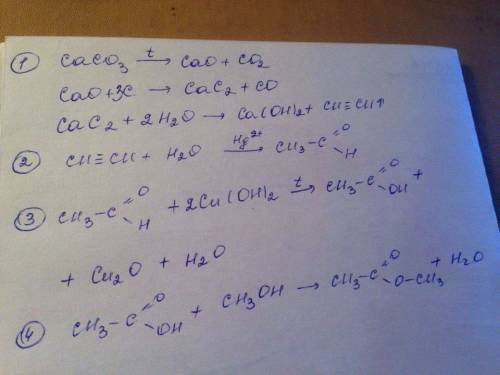 ① CaCO₃ —t→ CaO + CO₂
CaO + 3C → CaC₂ + CO
CaC₂ + 2H₂O → Ca(OH)₂ + CH≡CH↑
② CH≡CH + H₂O —Hg²⁺→ CH₃-C(=O)-H
③ CH₃-C(=O)-H + 2Cu(OH)₂ —t→ CH₃-C(=O)-OH +
+ Cu₂O + H₂O
④ CH₃-C(=O)-OH + CH₃OH → CH₃-C(=O)-O-CH₃ + H₂O